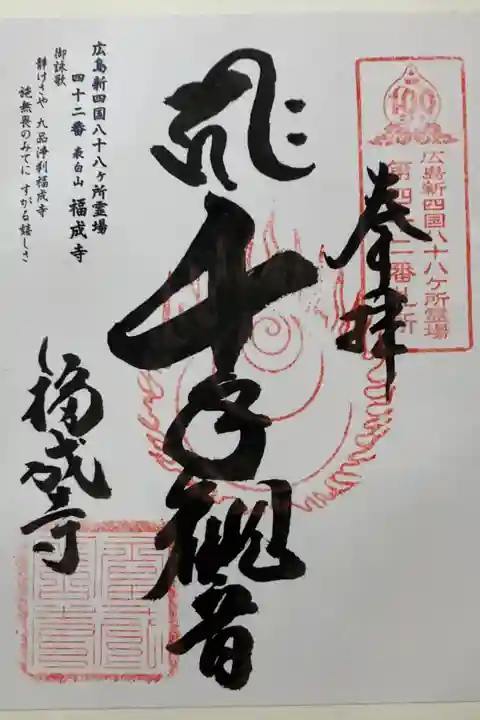 100
広島新四国八十八ケ所霊場
第四十二番札所
奉拝
千手観音
福成寺
広島新四国八十八ケ所霊場
四十二番 表白山 福成寺
御詠歌
静けさや 九品浄刹福成寺
施無畏のみてに すがる嬉しさ